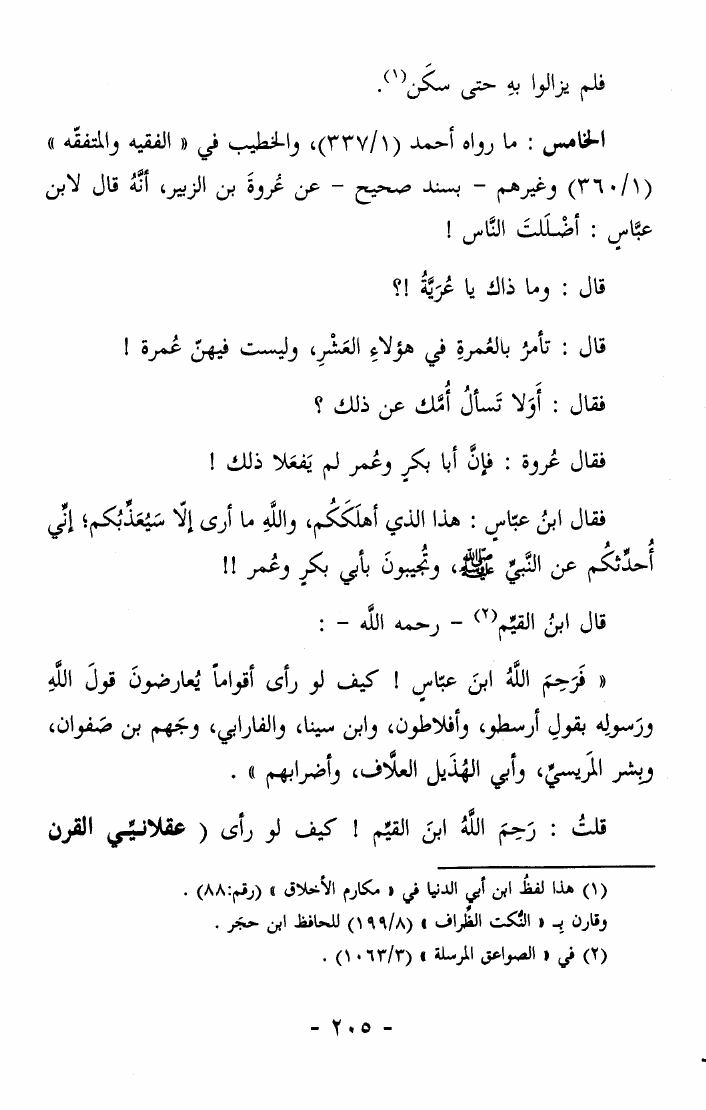 فلم يزالوا بهِ حتى سكَن(١).
الخامس : ما رواه أحمد (٣٣٧/١)، والخطيب في « الفقيه والمتفقّه »
(٣٦٠/١) وغيرهم - بسند صحيح - عن عُروةَ بن الزبير، أنَّهُ قال لابن
عبَّاسٍ : أضْلَلتَ النَّاس !
قال : وما ذاك يا عُرَيَّةُ !؟
قال : تأمرُ بالعُمرةِ في هؤلاءِ العَشْرِ، وليست فيهنّ عُمرة !
فقال : أَوَلا تَسألُ أُمَّك عن ذلك ؟
فقال عُروة : فإنَّ أبا بكرٍ وعُمر لم يَفعَلا ذلك !
فقال ابنُ عبّاسٍ : هذا الذي أهلَكَكُم، واللَّهِ ما أرى إلّا سَيُعَذِّبُكم؛ إنِّي
أُحدِّثكُم عن النَّبيِّ ﷺ، وتُجيبونَ بأبي بكرٍ وعُمر !!
قال ابنُ القيِّم(٢) - رحمه اللَّه - :
« فَرَحِمَ اللَّهُ ابنَ عبّاسٍ ! كيف لو رأى أقواماً يُعارضونَ قولَ اللَّهِ
ورَسولِه بقولِ أرسطو، وأفلاطون، وابن سينا، والفارابي، وجَهم بن صَفوان،
وبِشر المَريسيِّ، وأبي الهُذَيل العلَّاف، وأضرابهم » .
قلتُ : رَحِمَ اللَّهُ ابنَ القيِّم ! كيف لو رأى ( عقلانـيِّـي القرن
(١) هذا لفظُ ابن أبي الدنيا في « مكارم الأخلاق » (رقم:٨٨) .
وقارن بـ « النُّكت الظِّراف » (١٩٩/٨) للحافظ ابن حجَر .
(٢) في « الصواعق المرسلة » (١٠٦٣/٣) .
- ٢٠٥ -